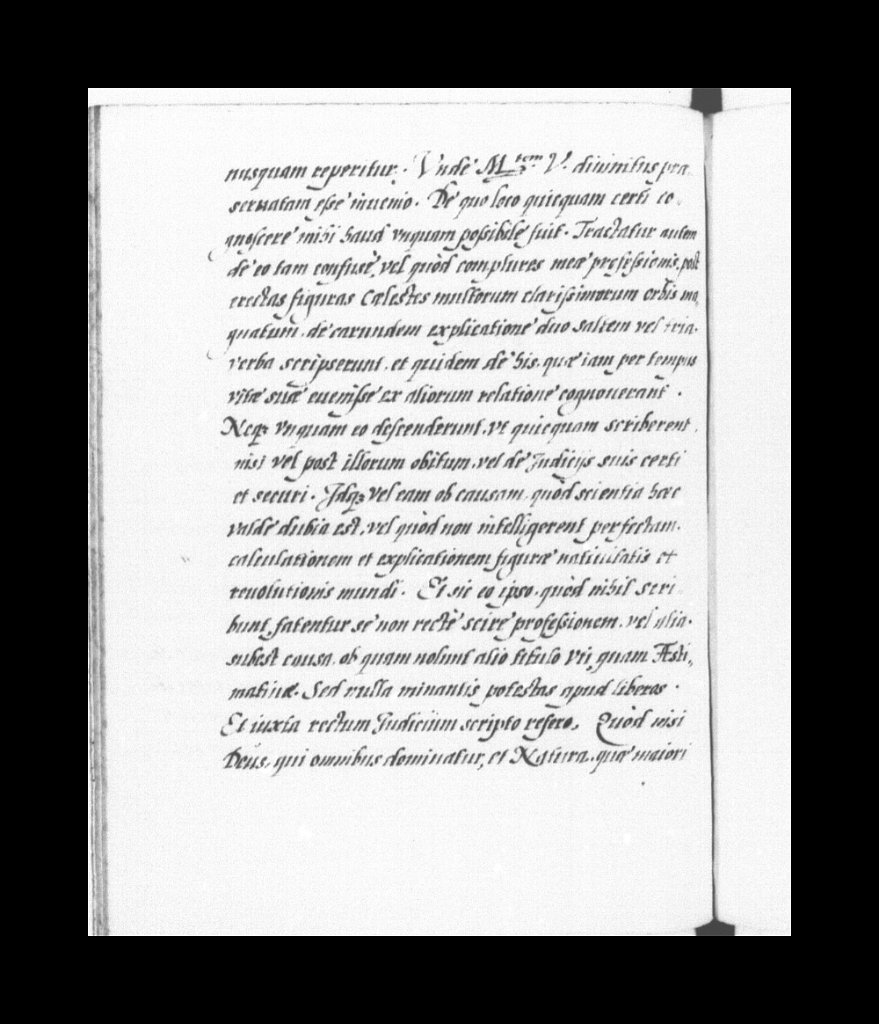 nusquam reperitur. Vnde M.tem V. diuinitus præ,
seruatam esse inuenio. De quo loco quicquam certi co,
gnoscere mihi haud vnquam possibile fuit. Tractatur autem
de eo tam confuse, vel quòd complures meæ professionis, post
erectas figuras Cælestes multorum clarissimorum orbis ma,
gnatum, de earundem explicatione duo saltem vel tria,
verba scripserunt, et quidem de his, quæ iam per tempus
vitæ suæ euenisse ex aliorum relatione cognouerant.
Neq3 vnquam eo descenderunt, vt quicquam scriberent,
nisi vel post illorum obitum, vel de Judicijs suis certi
et securi. Jdq3 vel eam ob causam, quòd scientia hæc
valde dubia est, vel quòd non intelligerent perfectam
calculationem et explicationem figuræ natiuitatis et
reuolutionis mundi. Et sic eo ipso, quòd nihil scri,
bunt, fatentur se non rectè scire professionem, vel alia
subest causa, ob quam nolunt alio titulo vti quam Æsti,
matiuæ. Sed nulla minantis potestas apud liberos.
Et iuxta rectum Judicium scripto refero, Quòd nisi
Deus, qui omnibus dominatur, et Natura, quæ maiori